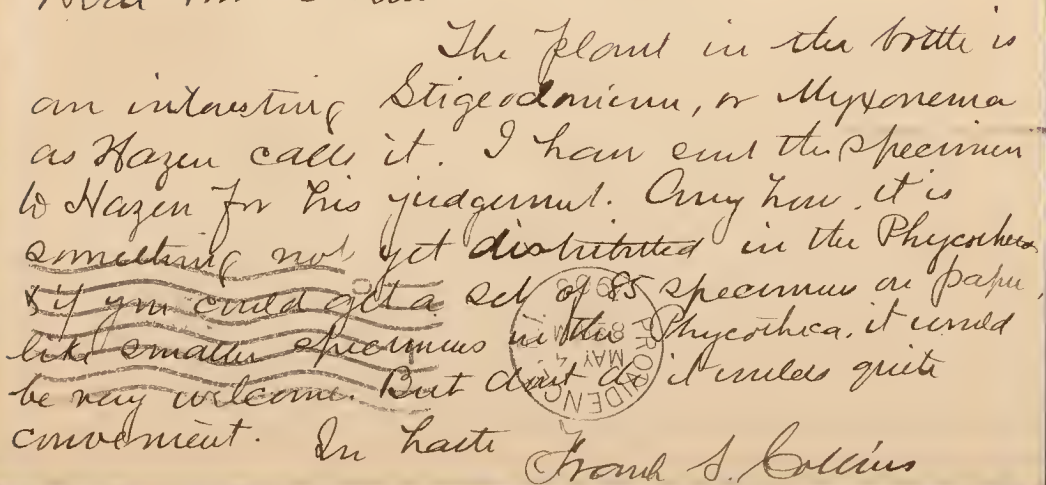 The plant in the bottle is
an interesting Stigeodonium, or Myxonema
as Hazen calls it. I have sent the specimen
to Hazen for his judgement. Any how, it is
something not yet distributed in the Phycotheca
& if you could get a set of 85 specimens on paper,
like smaller specimens in the Phycotheca, it would
be very welcome. But don't do it unless quite
convenient. In haste
Frank S. Collins
PROVIDENCE
MAY 4